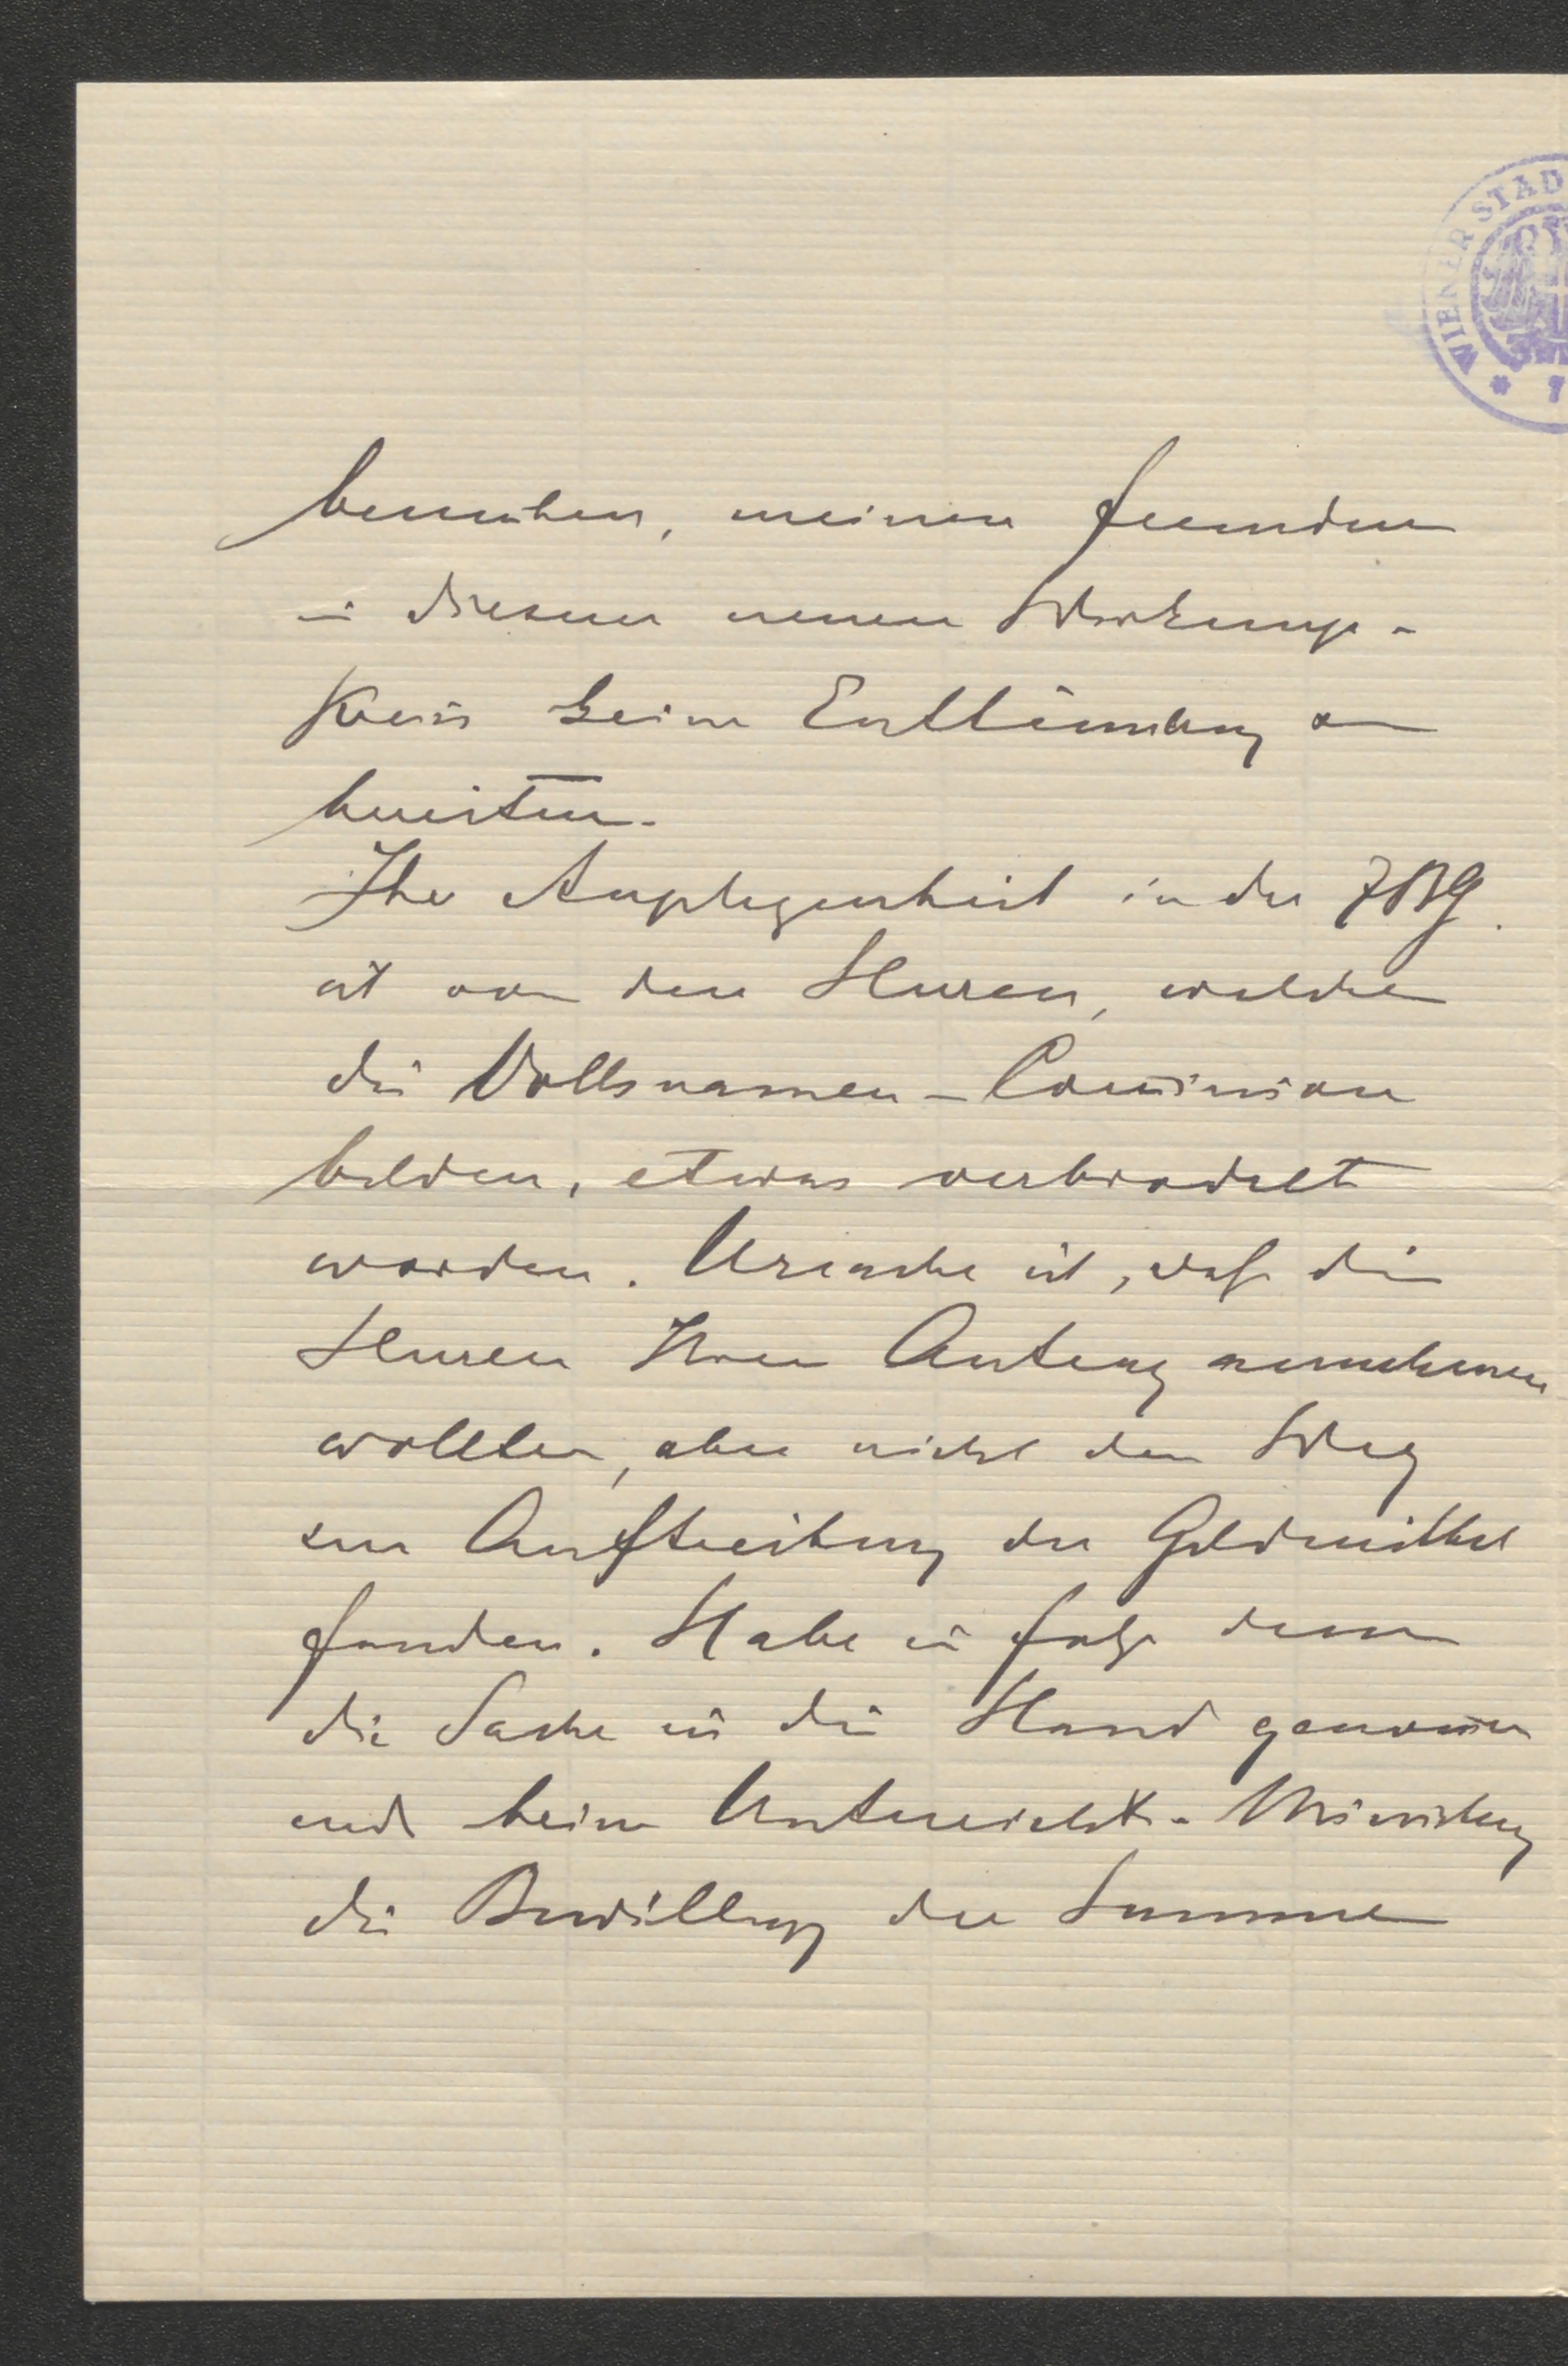 WIENER STAD
bemühen, meinen Freunden
in diesem neuen Wirkungs-
Kreis keine Enttäuschung zu
bereiten.
Ihre Angelegenheit in der ZBG.
ist von den Herren, welche
die Volksnamen-Com̅ission
bilden, etwas verbrodelt
worden. Ursache ist, daß die
Herren Ihren Antrag annehmen
wollten, aber nicht den Weg
zur Auftreibung der Geldmittel
fanden. Habe in Folge dessen
die Sache in die Hand genom̅en
und beim Unterrichts-Ministerium
die Bewilligung der Summe